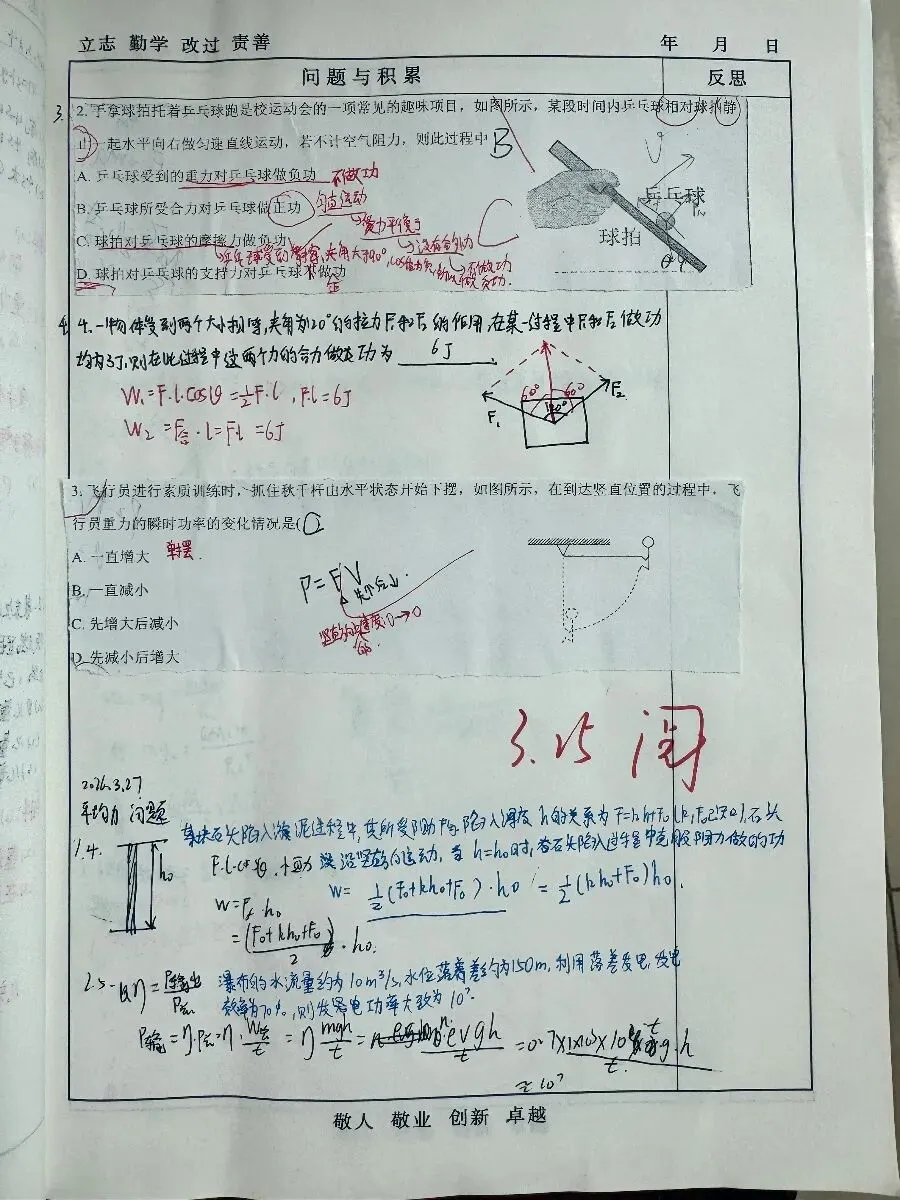 立志 勤学 改过 责善
年 月 日
问题与积累
反思
3.
2. 手拿球拍托着乒乓球跑是校运动会的一项常见的趣味项目，如图所示，某段时间内乒乓球相对球拍静
止一起水平向右做匀速直线运动，若不计空气阻力，则此过程中
B
A. 乒乓球受到的重力对乒乓球做负功
不做功
B. 乒乓球所受合力对乒乓球做正功
匀直运动
受力平衡
C. 球拍对乒乓球的摩擦力做负功
没有合外力
不做功
做负功.
D. 球拍对乒乓球的支持力对乒乓球不做功
正
乒乓球
球拍
4. 一物体受到两个大小相等,夹角为120°的拉力F₁和F₂的作用,在某一过程中F₁和F₂做功
均为3J,则在此过程中这两个力的合力做总功为 6J
W₁=F·l·cosθ=½F·l ,F·l=6J
W₂ = F合·l=F·l =6J
60° 60°
120°
F₁
F₂
3. 飞行员进行素质训练时，抓住秋千杆由水平状态开始下摆，如图所示，在到达竖直位置的过程中，飞
行员重力的瞬时功率的变化情况是(
A. 一直增大
单摆.
B. 一直减小
C. 先增大后减小
D. 先减小后增大
P=FV
竖直的速度,0→0
3.25 阅
2026.3.27
平均力 问题
1.4.
h₀
某块石头陷入淤泥过程中,其所受阻力F与陷入深度h的关系为F=kh+F₀(k,F₀已知),石头
没沿竖直方向运动,当h=h₀时,
石头陷入过程中克服阻力做的功
W= ½(F₀+kh₀+F₀)·h₀ = ½(kh₀+F₀)h₀.
W=F·h₀
=(F₀+kh₀+F₀)/2 ·h₀.
2.5.
瀑布的水流量约为10m³/s,水位落差约为150m,利用落差发电,发电
效率为70%,则发电功率大致为10⁷.
P输=η·P总=η·W总/t = η mgh/t
≈10⁷
敬人 敬业 创新 卓越